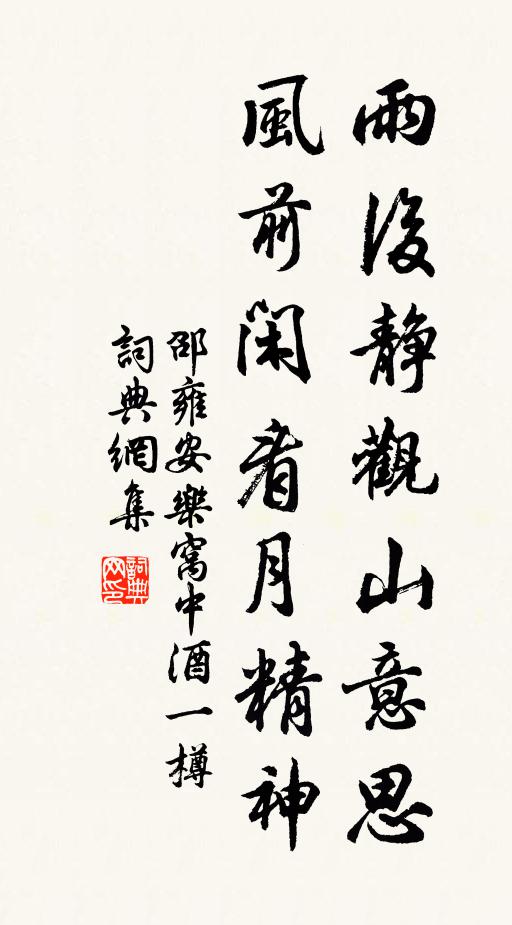 雨後靜觀山意思
風前閑看月精神
邵雍安樂窩中酒一樽
詞典網集
詞典网印